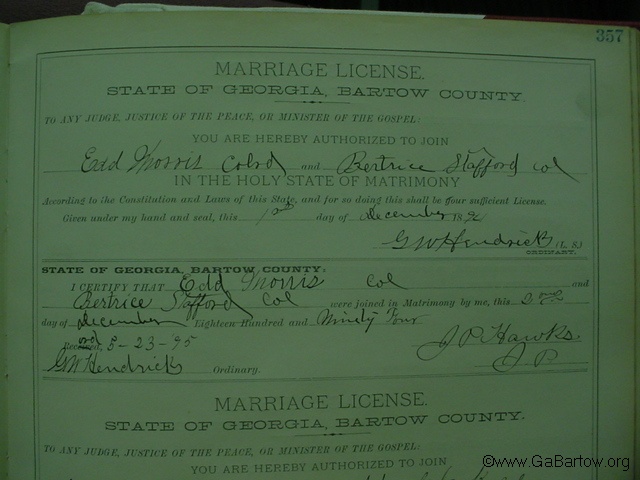 357
MARRIAGE LICENSE.
STATE OF GEORGIA, BARTOW COUNTY.
TO ANY JUDGE, JUSTICE OF THE PEACE, OR MINISTER OF THE GOSPEL:
YOU ARE HEREBY AUTHORIZED TO JOIN
Edd Morris Colrd and Bertrice Stafford col
IN THE HOLY STATE OF MATRIMONY
According to the Constitution and Laws of this State, and for so doing this shall be your sufficient License.
Given under my hand and seal, this 1st day of December 189
GW Hendricks (L. S.)
ORDINARY.
STATE OF GEORGIA, BARTOW COUNTY:
I CERTIFY THAT Edd Morris Col and
Bertrice Stafford Col were joined in Matrimony by me, this 2nd
day of December Eighteen Hundred and Ninety Four
3-23-95 J P Hawks
GW Hendricks Ordinary. J. P.
MARRIAGE LICENSE.
STATE OF GEORGIA, BARTOW COUNTY.
TO ANY JUDGE, JUSTICE OF THE PEACE, OR MINISTER OF THE GOSPEL:
YOU ARE HEREBY AUTHORIZED TO JOIN
©www.GaBartow.org